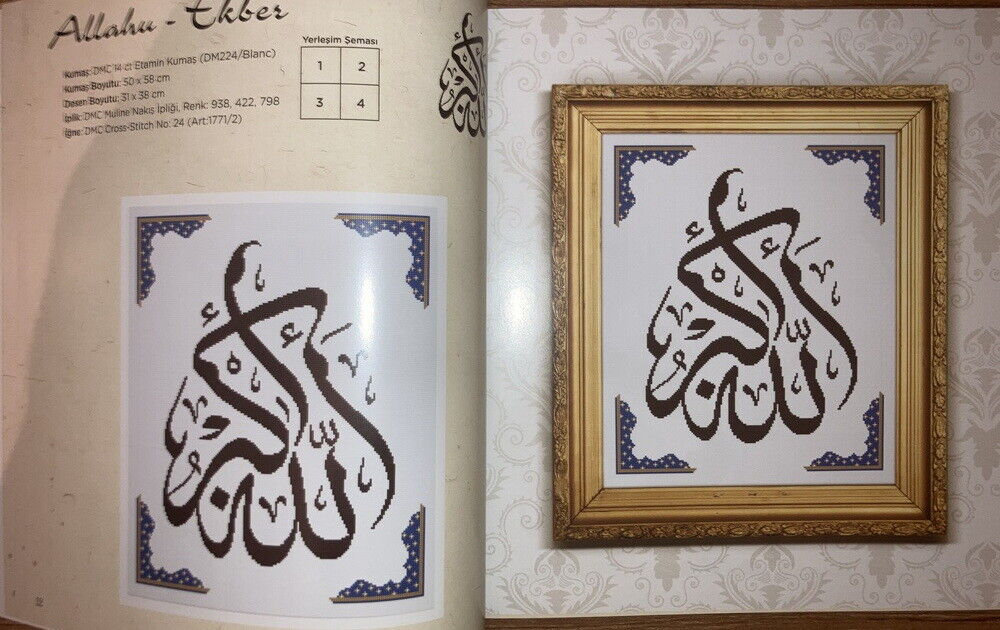 Allahu - Ekber
Kumaş: DMC 14 ct Etamin Kumaş (DM224/Blanc)
Kumaş Boyutu: 50 x 58 cm
Desen Boyutu: 31 x 38 cm
İplik: DMC Muline Nakış İpliği, Renk: 938, 422, 798
İğne: DMC Cross-Stitch No: 24 (Art:1771/2)
Yerleşim Şeması
1 2
3 4
الله أكبر
الله أكبر